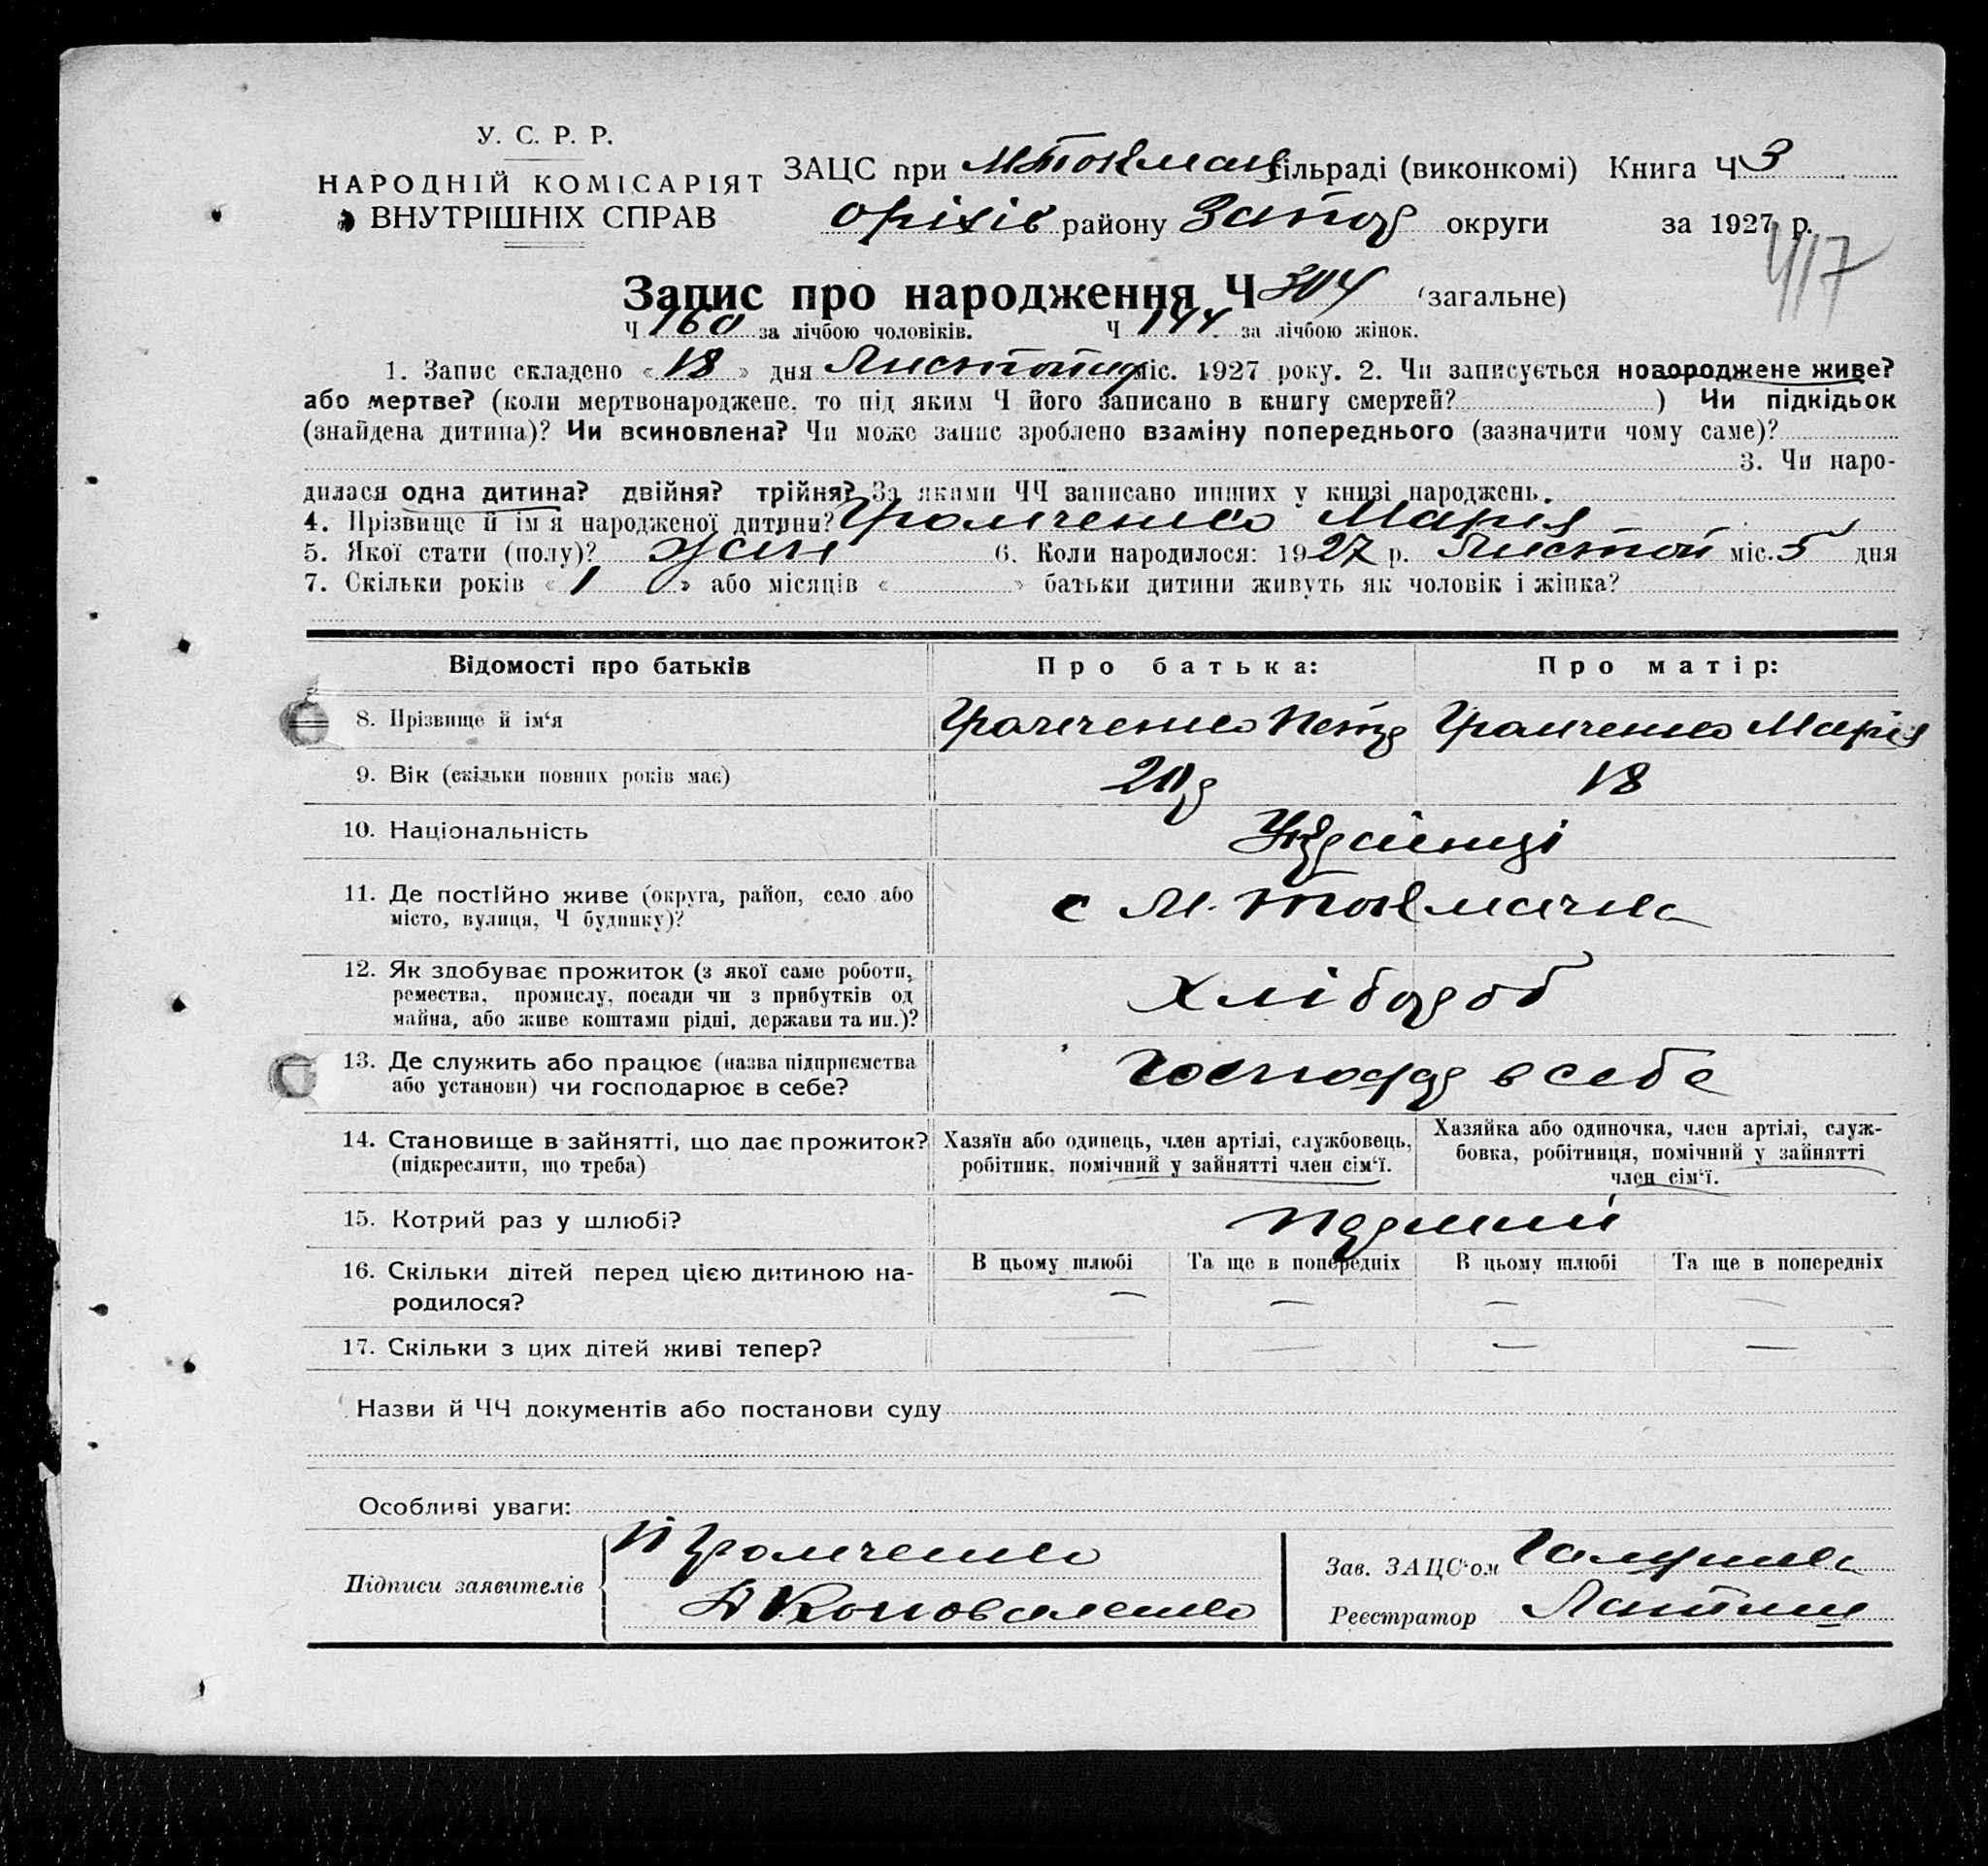 У. С. Р. Р.
НАРОДНІЙ КОМІСАРІЯТ
ВНУТРІШНІХ СПРАВ
ЗАЦС при М Токмац сільраді (виконкомі) Книга Ч 3
Оріхів району Запор округи за 1927 р.
417
Запис про народження Ч 304 (загальне)
Ч 160 за лічбою чоловіків. Ч 144 за лічбою жінок.
1. Запис складено « 18 » дня Листопад міс. 1927 року. 2. Чи записується новороджене живе?
або мертве? (коли мертвонароджене, то під яким Ч його записано в книгу смертей? ) Чи підкідьок
(знайдена дитина)? Чи всиновлена? Чи може запис зроблено взаміну попереднього (зазначити чому саме)?
3. Чи наро-
дилася одна дитина? двійня? трійня? За якими ЧЧ записано инших у книзі народжень.
4. Прізвище й ім'я народженої дитини? Громченко Марія
5. Якої стати (полу)? жін 6. Коли народилося: 1927 р. Листоп міс. 5 дня
7. Скільки років « 1 » або місяців « » батьки дитини живуть як чоловік і жінка?
Відомості про батьків Про батька: Про матір:
8. Прізвище й ім'я Громченко Петр Громченко Марія
9. Вік (скільки повних років має) 20 р 18
10. Національність Українці
11. Де постійно живе (округа, район, село або
місто, вулиця, Ч будинку)? с М. Токмачка
12. Як здобуває прожиток (з якої саме роботи,
ремества, промислу, посади чи з прибутків од
майна, або живе коштами рідні, держави та ин.)? Хлібороб
13. Де служить або працює (назва підприємства
або установи) чи господарює в себе? Господар в себе
14. Становище в зайнятті, що дає прожиток?
(підкреслити, що треба)
Хазяїн або одинець, член артілі, службовець,
робітник, помічний у зайнятті член сім'ї.
Хазяйка або одиночка, член артілі, служ-
бовка, робітниця, помічний у зайнятті
член сім'ї.
15. Котрий раз у шлюбі? Перший
16. Скільки дітей перед цією дитиною на-
родилося?
В цьому шлюбі Та ще в попередніх В цьому шлюбі Та ще в попередніх
— — — —
17. Скільки з цих дітей живі тепер? — — — —
Назви й ЧЧ документів або постанови суду
Особливі уваги:
Підписи заявителів
П Громченко
Коноваленко
Зав. ЗАЦС'ом
Реєстратор